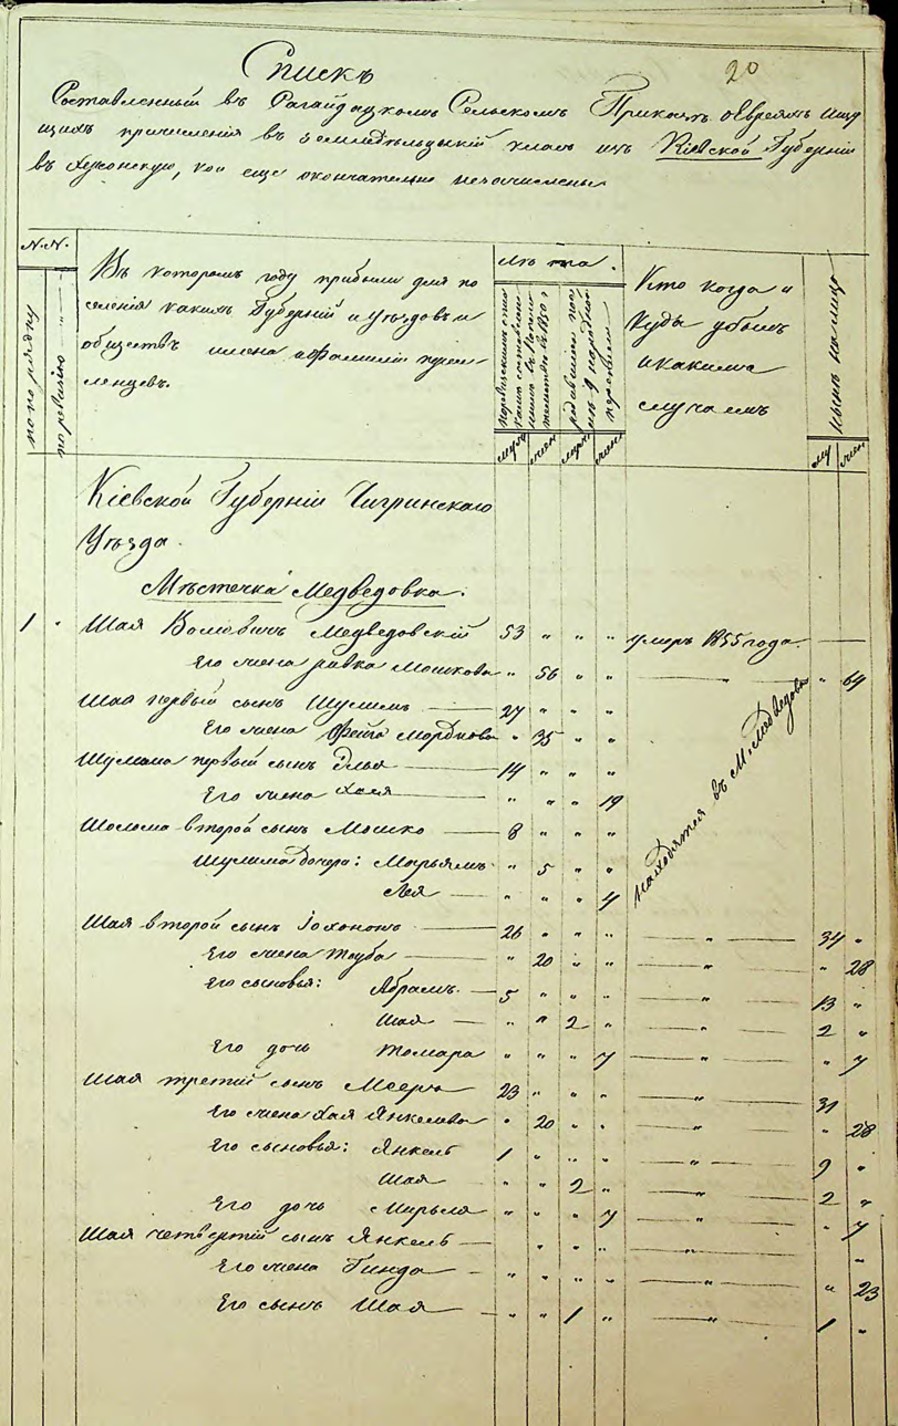 20
Списокъ
Составленный въ Сельскомъ Приказѣ о Евреяхъ ищу
щихъ причисления въ земледѣльческій класъ изъ Кіевской Губерніи
въ Херсонскую, кои еще окончательно незачислены
N. N.
по порядку
по ревизіи
Въ которомъ году прибыли для по
селенія какихъ Губерній и Уѣздовъ и
обществъ имена и Фамиліи пересе-
ленцевъ.
лѣта.
муж
жен
муж
жен
Кто когда и
куда убылъ
и какимъ
случаемъ
нынѣ на лицо
му
жен
Кіевской Губерніи Чигринскаго
Уѣзда.
Мѣстечка Медведовка.
1 " Шая Волковичъ Медведовскій 53 " " " умеръ 1855 года. ——
Его жена Ривка Мошкова " 56 " " — " — " 64
Шая первый сынъ Шулимъ —— 27 " " "
Его жена Фейга Мордкова " 35 " "
Шулима первый сынъ Элья —— 14 " " "
Его жена Хася —— " " " 19
второй сынъ Мошко —— 8 " " "
Шулима дочери: Марьямъ " 5 " "
Лея — " " " 4
находятся въ М. Медведовка
Шая второй сынъ Іохононъ —— 26 " " " — " — 34 "
Его жена Тауба —— " 20 " " — " — " 28
Его сыновья: Абрамъ — 5 " " " — " — 13 "
Шая — " " 2 " — " — 2 "
Его дочь Томара " " " 7 — " — " 7
Шая третій сынъ Мееръ 23 " " " — " — 31
Его жена Хая Янкелева " 20 " " — " — " 28
Его сыновья: Янкель 1 " " " — " — 9 "
Шая — " " 2 " — " — 2 "
Его дочь Мирьля " " " 7 — " — " 7
Шая четвертій сынъ Янкель — " " " — " — "
Его жена Гинда — " " " " — " — " 23
Его сынъ Шая — " " 1 " — " — 1 "